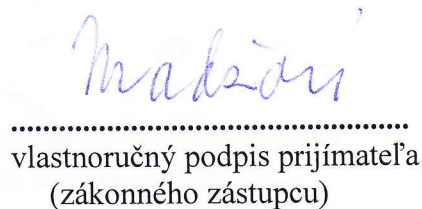 .......................................................
vlastnoručný podpis prijímateľa
(zákonného zástupcu)